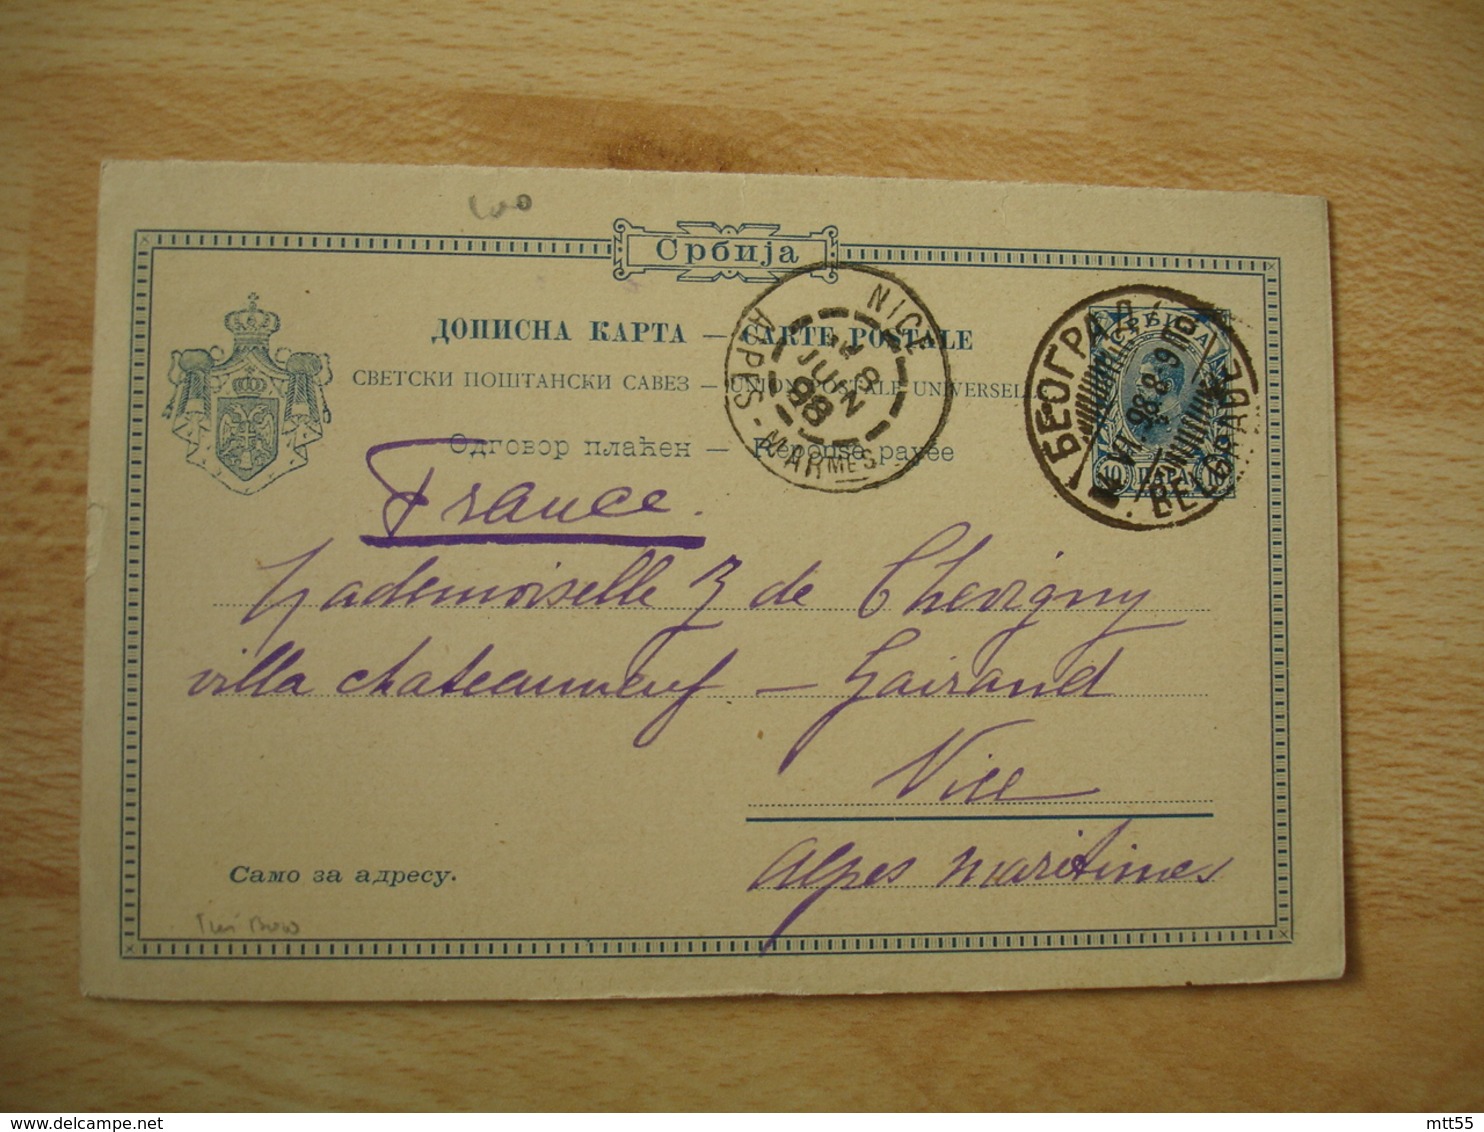 100
Србија
ДОПИСНА КАРТА — CARTE POSTALE
СВЕТСКИ ПОШТАНСКИ САВЕЗ — UNION POSTALE UNIVERSELLE
Одговор плаћен — Réponse payée
NICE
28
JUIN
98
ALPES-MARMES
СРБИЈА
10 ПАРА 10
БЕОГРАД
VI.98.8-9
BELGRADE
France.
Mademoiselle J de Chevigny
villa chateauneuf — Gairand
Nice
Alpes Maritimes
Само за адресу.
mtt55